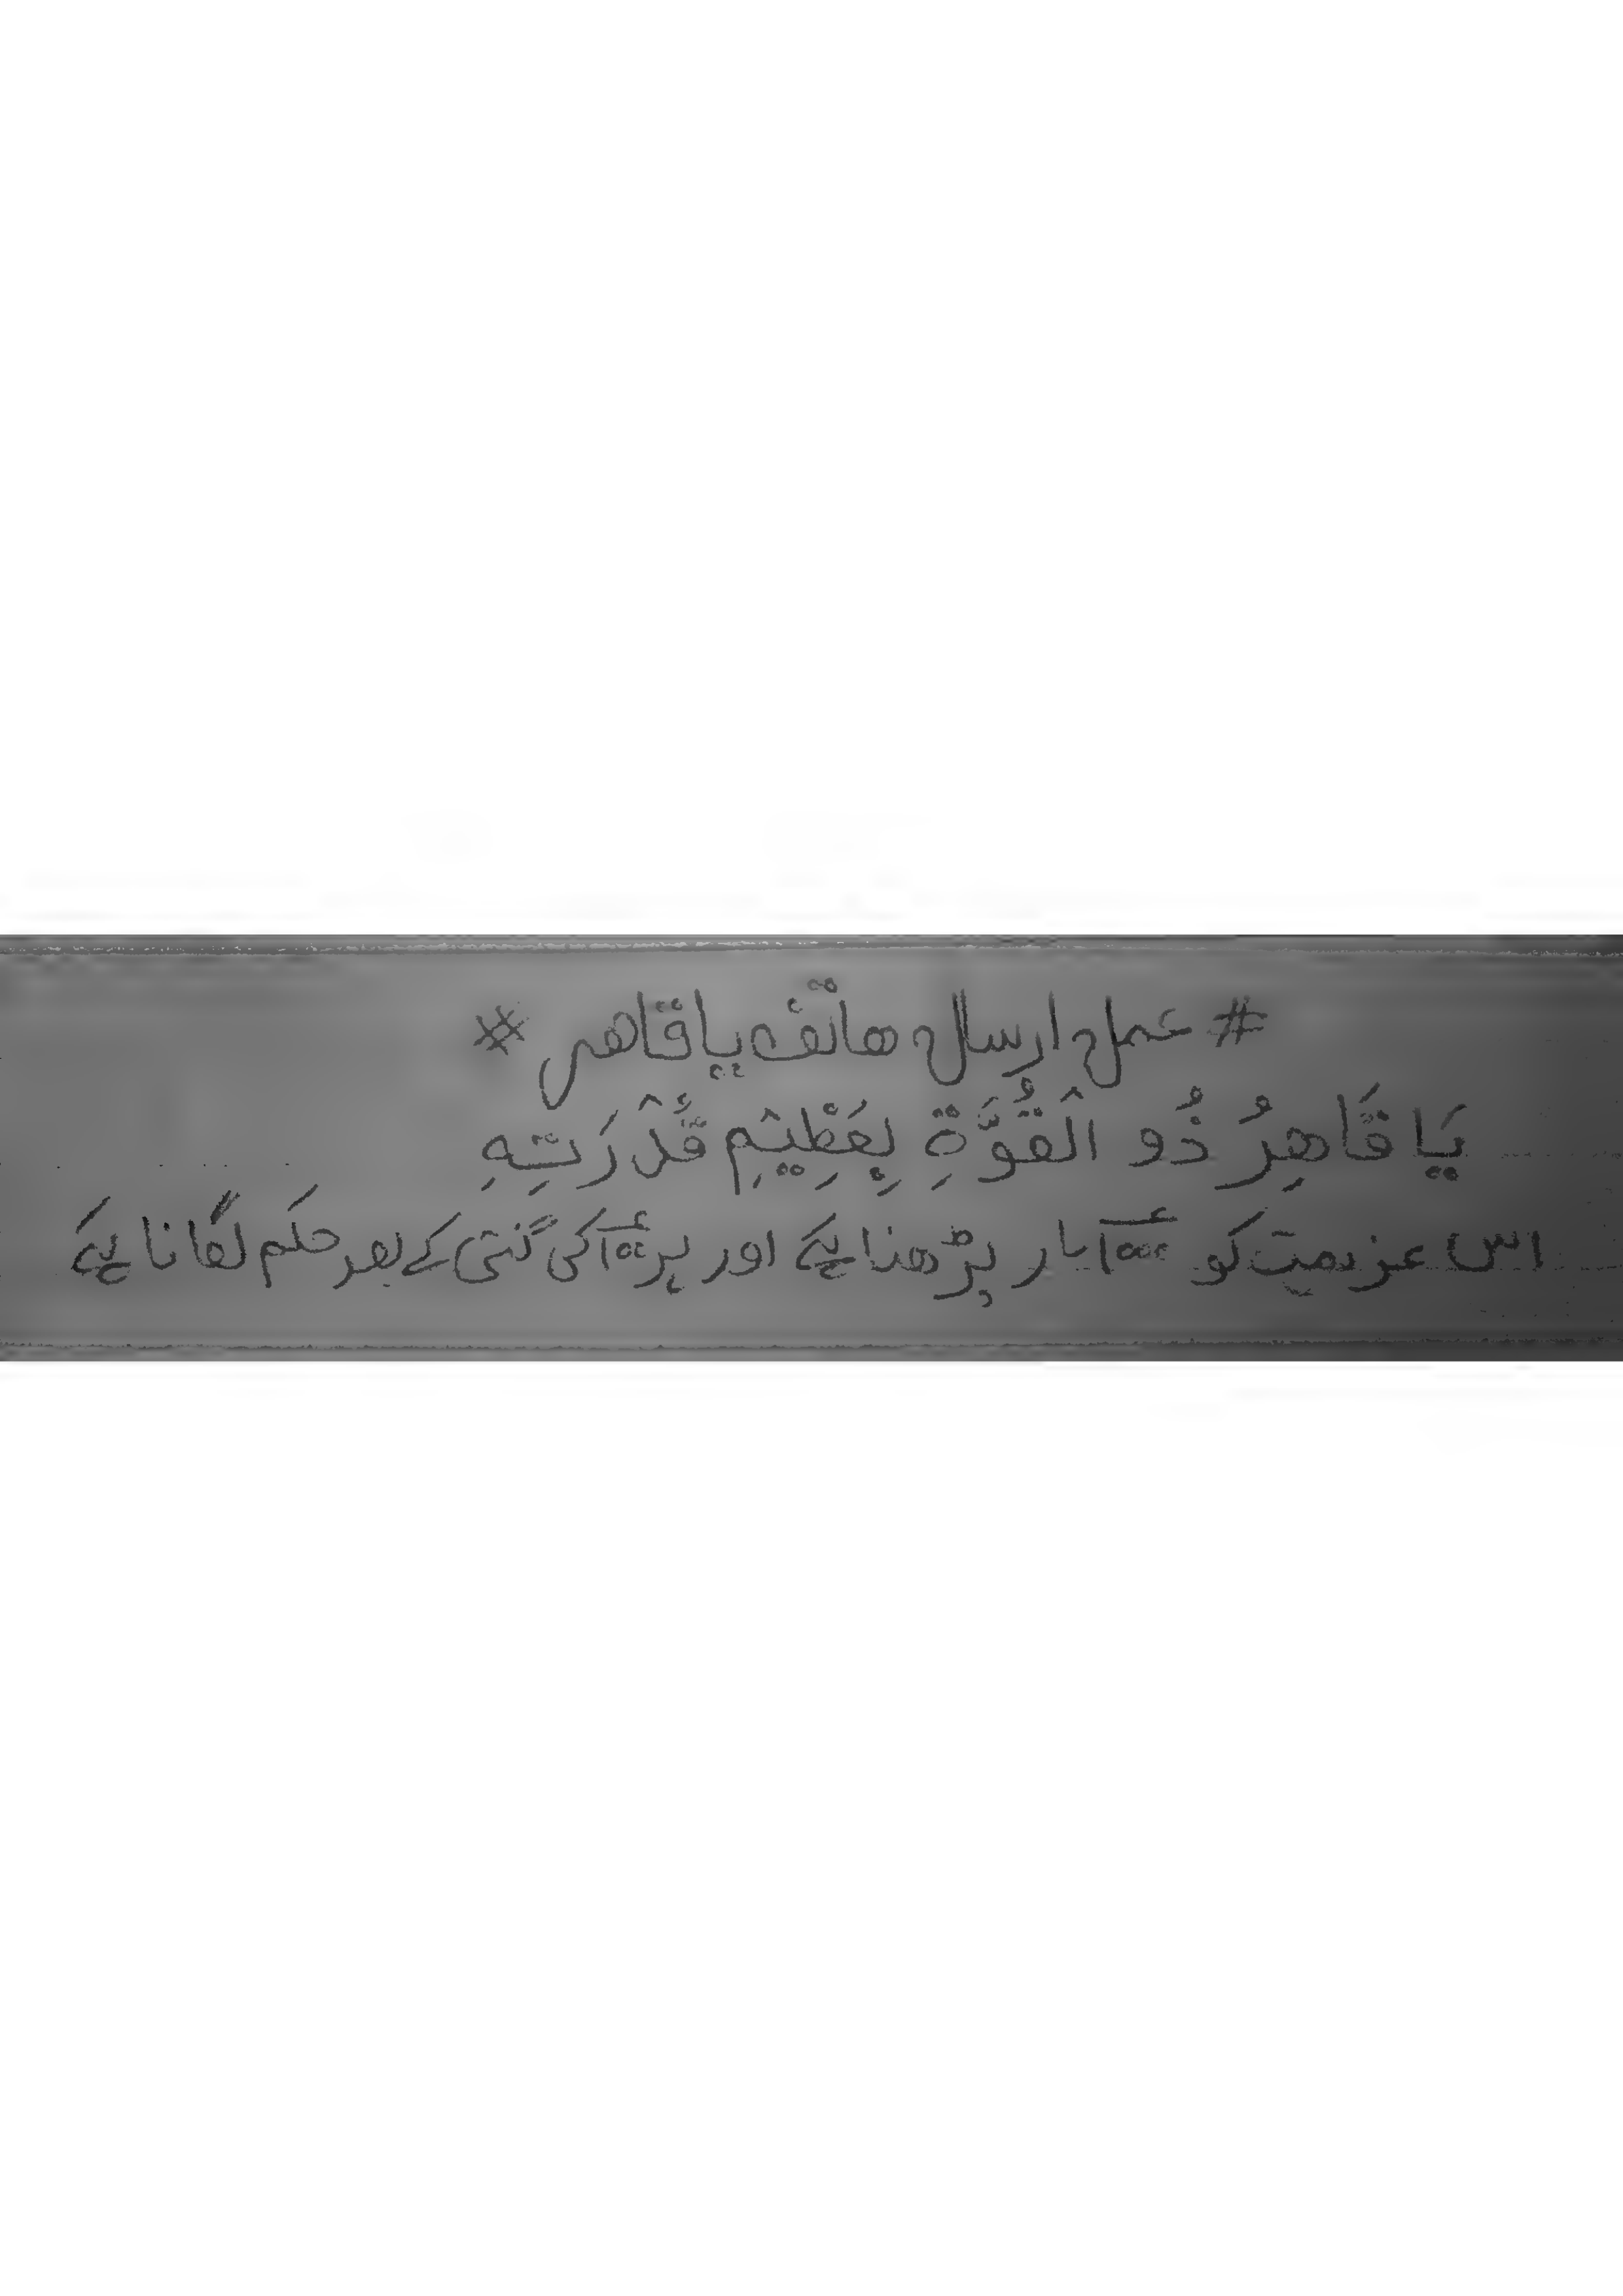 # عمل ارسال هاتف یا قاهر #
يَا قَاهِرُ ذُو الْقُوَّةِ بِعَظِيْمِ قُدْرَتِهِ
اس عزیمت کو ۱۰۰۰ بار پڑھنا ہے اور ہر ۱۰۰ کی گنتی کے بعد حکم لگانا ہے